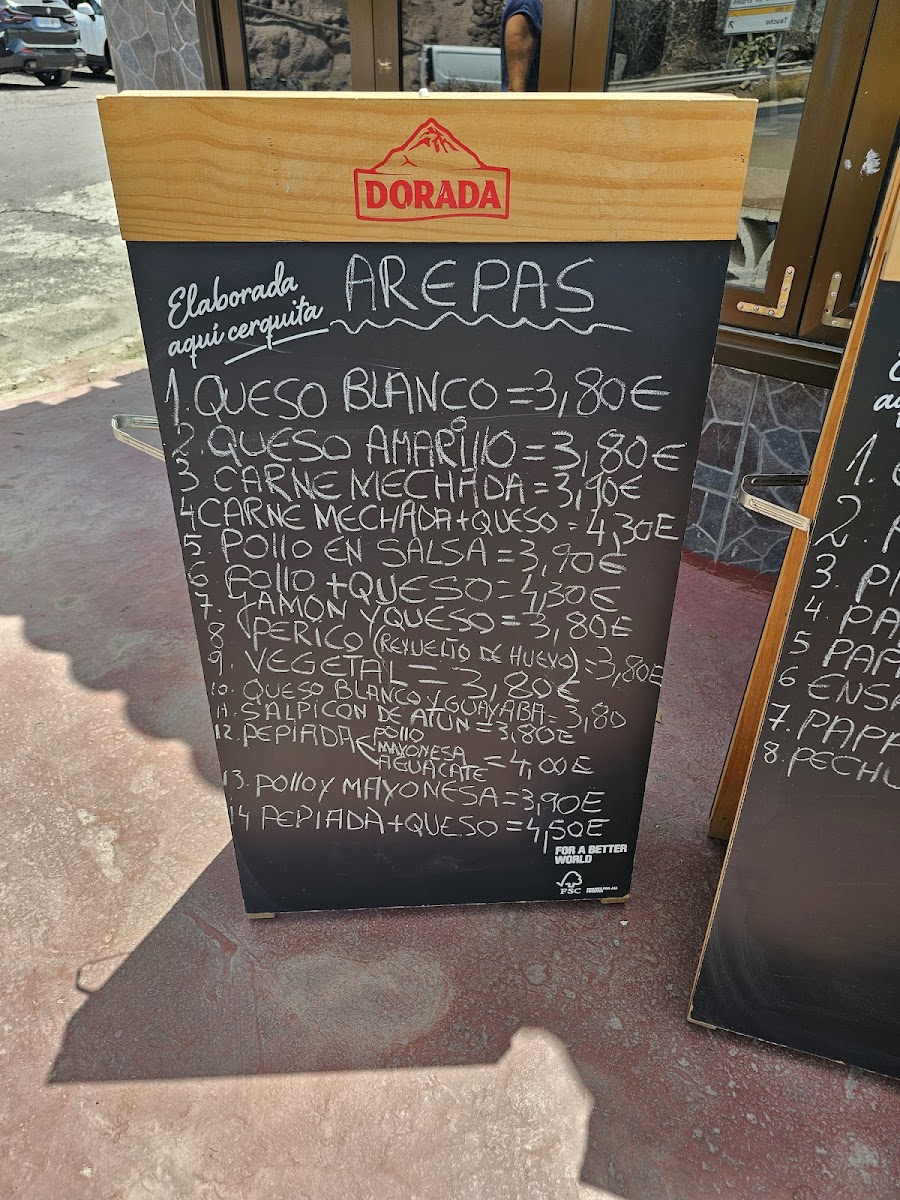 DORADA
Elaborada
aquí cerquita
AREPAS
1. QUESO BLANCO = 3,80€
2. QUESO AMARillO = 3,80€
3 CARNE MECHADA = 3,90€
4 CARNE MECHADA + QUESO = 4,30€
5. POllO EN SALSA = 3,90€
6. POllO + QUESO = 4,30€
7. JAMON Y QUESO = 3,80€
8 PERICO (REVUELTO DE HUEVO) = 3,80€
9. VEGETAL = 3,80€
10. QUESO BLANCO Y GUAYABA = 3,80
11. SALPICON DE ATUN = 3,80€
12. PEPIADA < POllO
MAYONESA = 4,00€
AGUACATE
13. POllO Y MAYONESA = 3,90€
14 PEPIADA + QUESO = 4,50€
FOR A BETTER
WORLD
FSC
1.
2.
3.
4.
5
6 ENSA
7.
8. PECHU